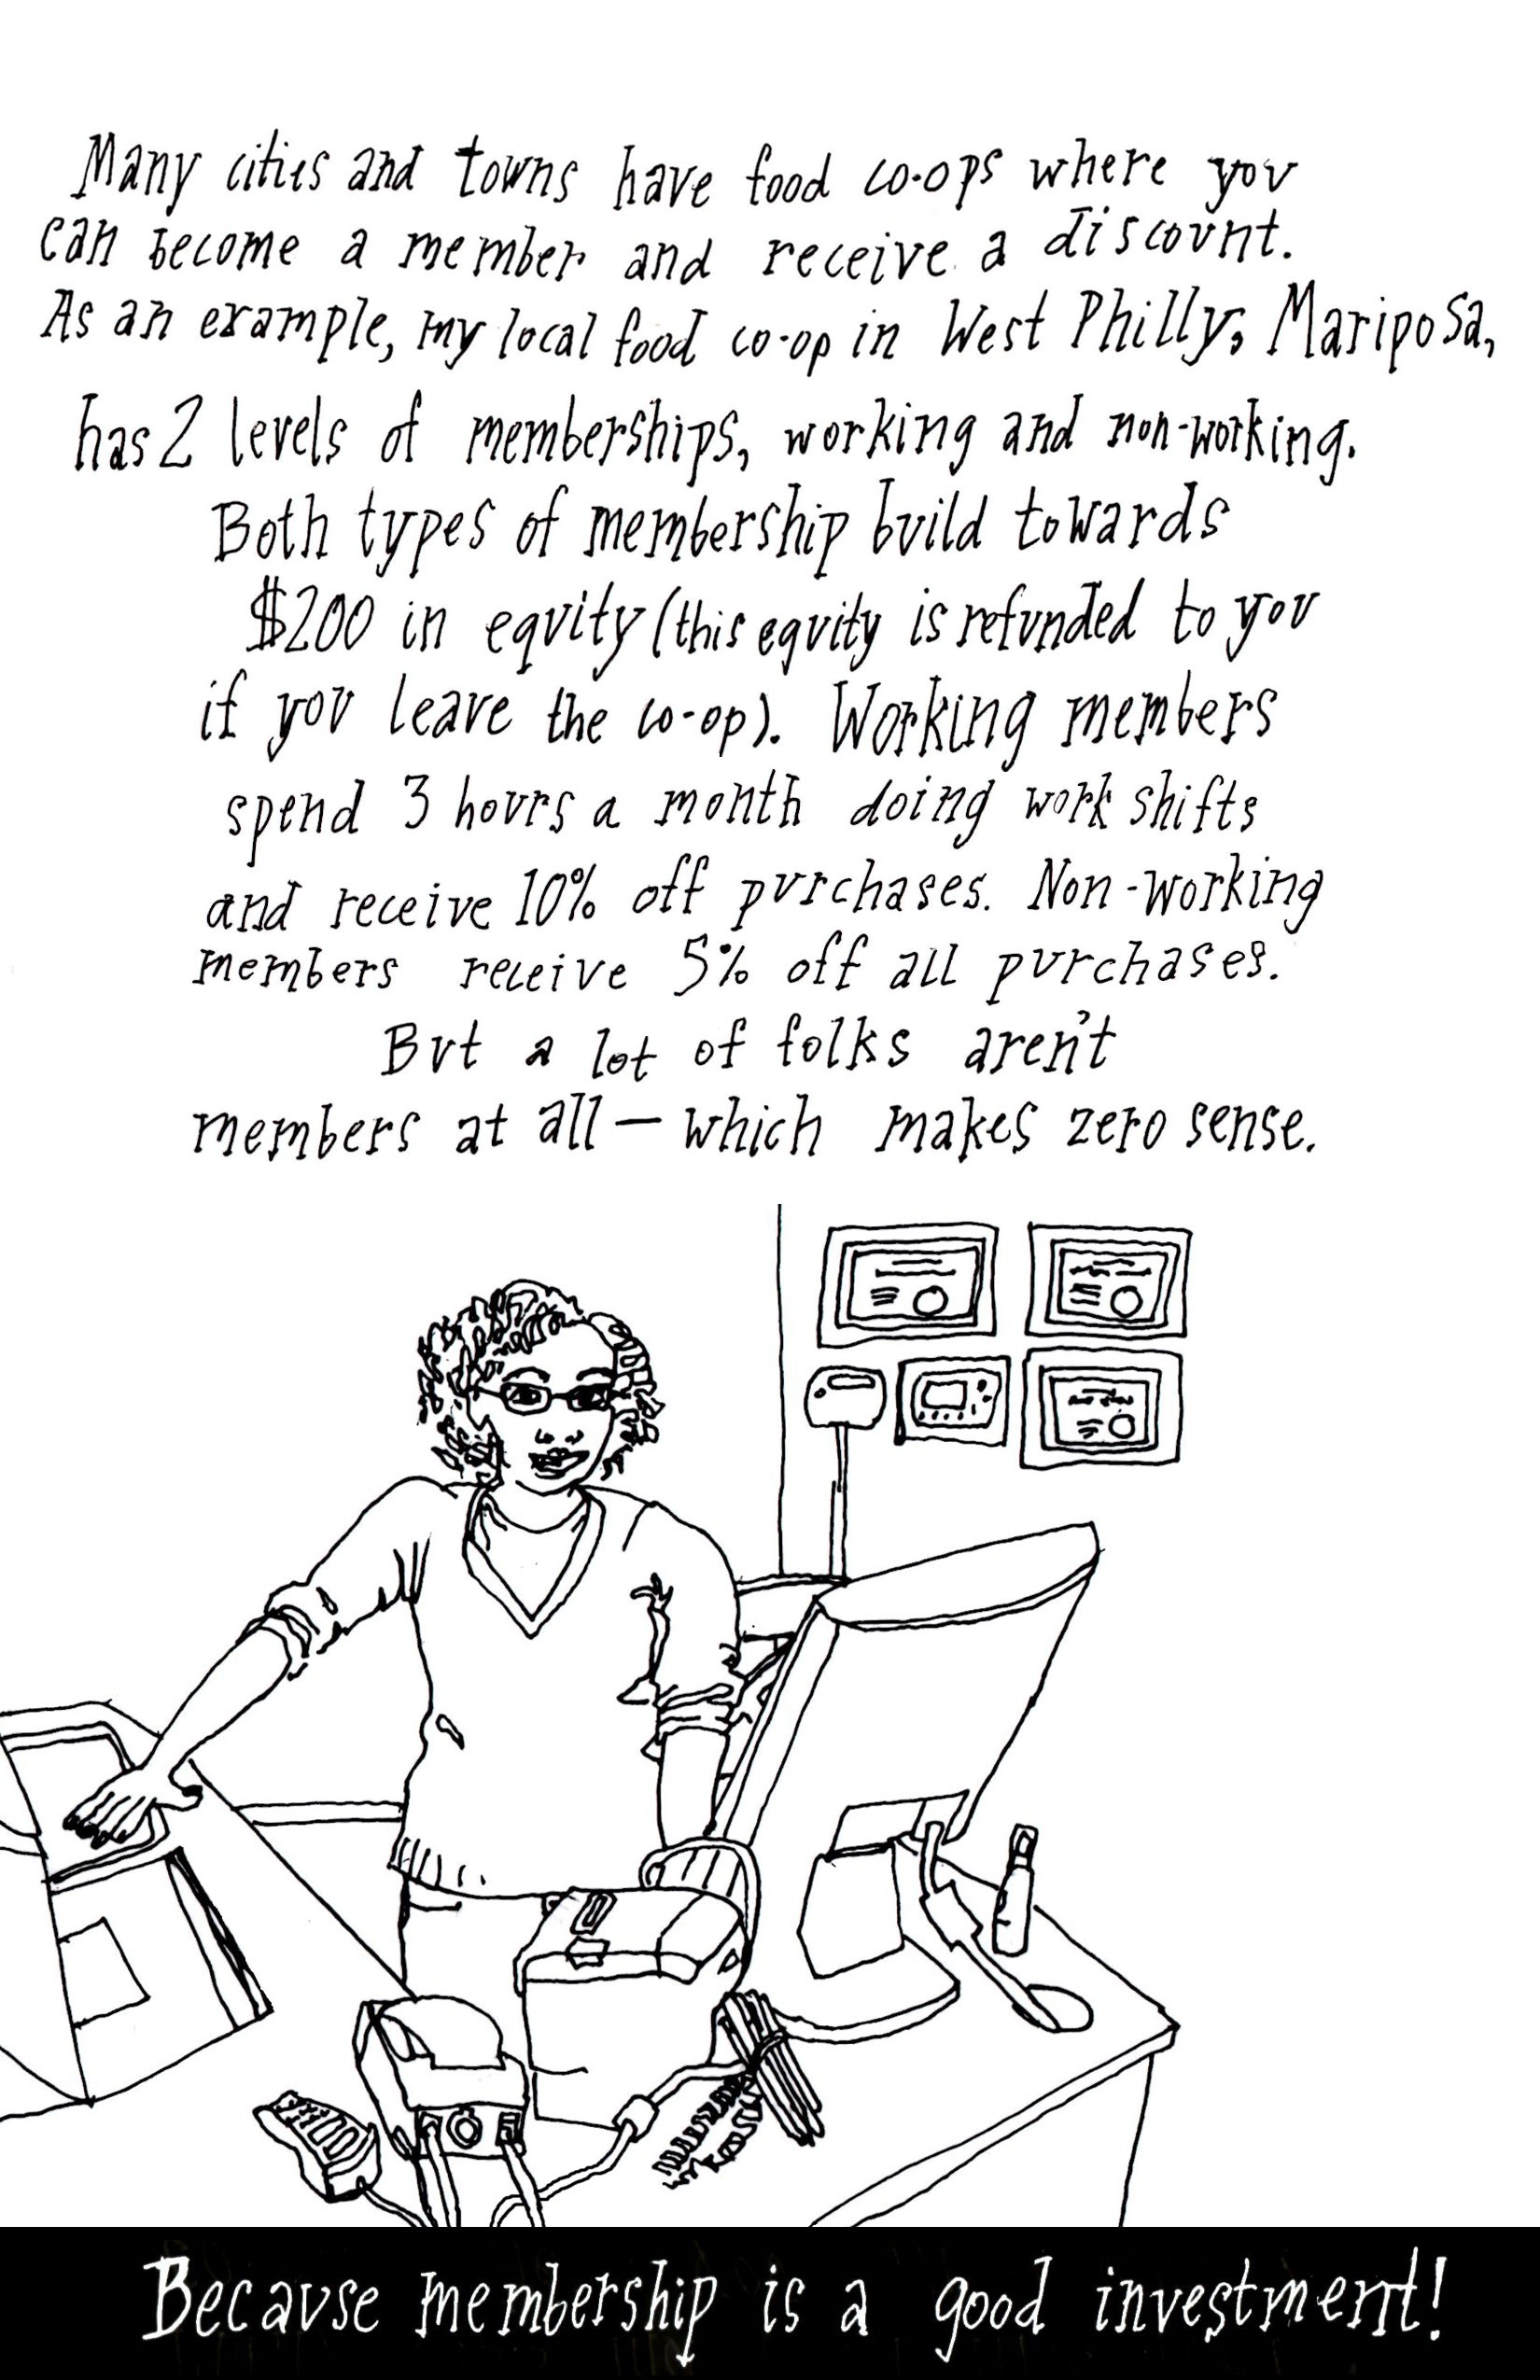 Many cities and towns have food co-ops where you
can become a member and receive a discount.
As an example, my local food co-op in West Philly, Mariposa,
has 2 levels of memberships, working and non-working.
Both types of membership build towards
$200 in equity (this equity is refunded to you
if you leave the co-op). Working members
spend 3 hours a month doing work shifts
and receive 10% off purchases. Non-working
members receive 5% off all purchases.
But a lot of folks aren't
members at all — which makes zero sense.
Because membership is a good investment!